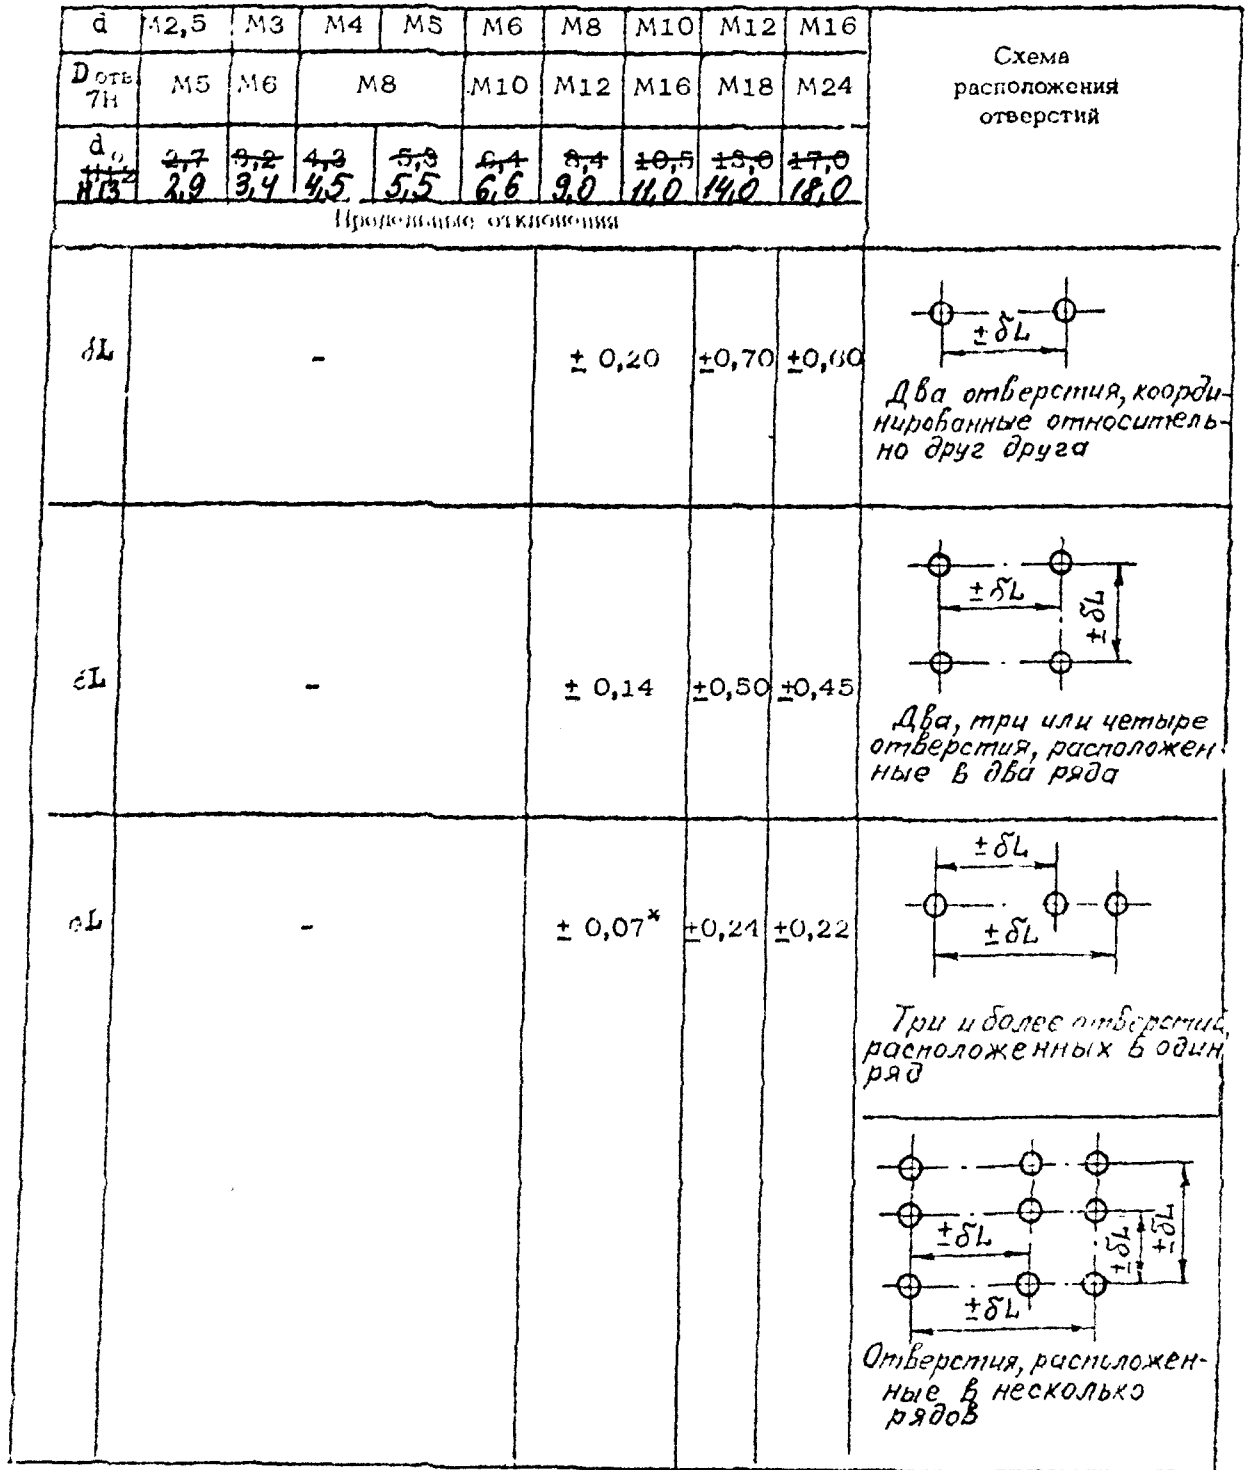 d M2,5 M3 M4 M5 M6 M8 M10 M12 M16
Схема
расположения
отверстий
D отв.
7Н M5 M6 M8 M10 M12 M16 M18 M24
d 2,7 3,2 4,3 5,3 6,4 8,4 10,5 13,0 17,0
H13 2,9 3,4 4,5 5,5 6,6 9,0 11,0 14,0 18,0
Предельные отклонения
δL - ± 0,20 ±0,70 ±0,60
±δL
Два отверстия, коорди-
нированные относитель-
но друг друга
δL - ± 0,14 ±0,50 ±0,45
±δL
±δL
Два, три или четыре
отверстия, расположен-
ные в два ряда
δL - ± 0,07* ±0,24 ±0,22
±δL
±δL
Три и более отверстий,
расположенных в один
ряд
±δL
±δL
±δL
±δL
Отверстия, расположен-
ные в несколько
рядов